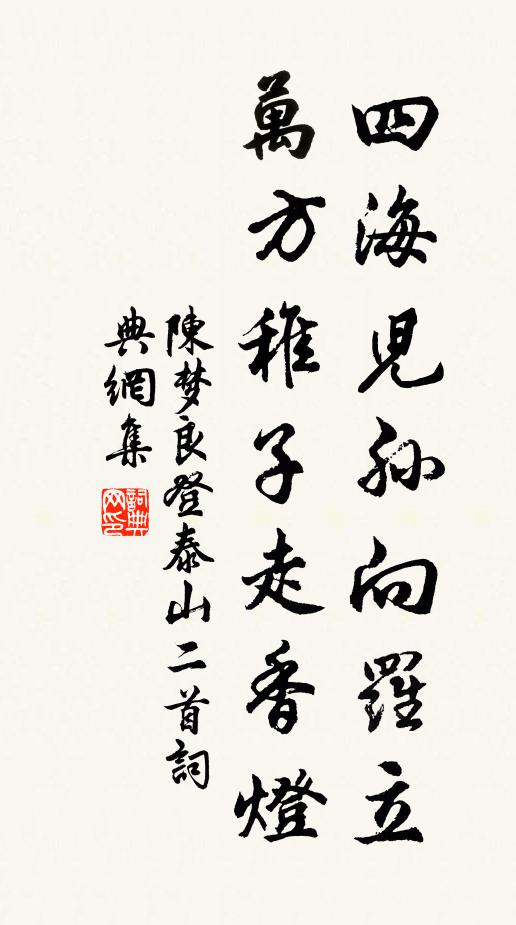 四海児孫向羅立
萬方稚子走香燈
陳梦良登泰山二首詞
典網集
詞典网印